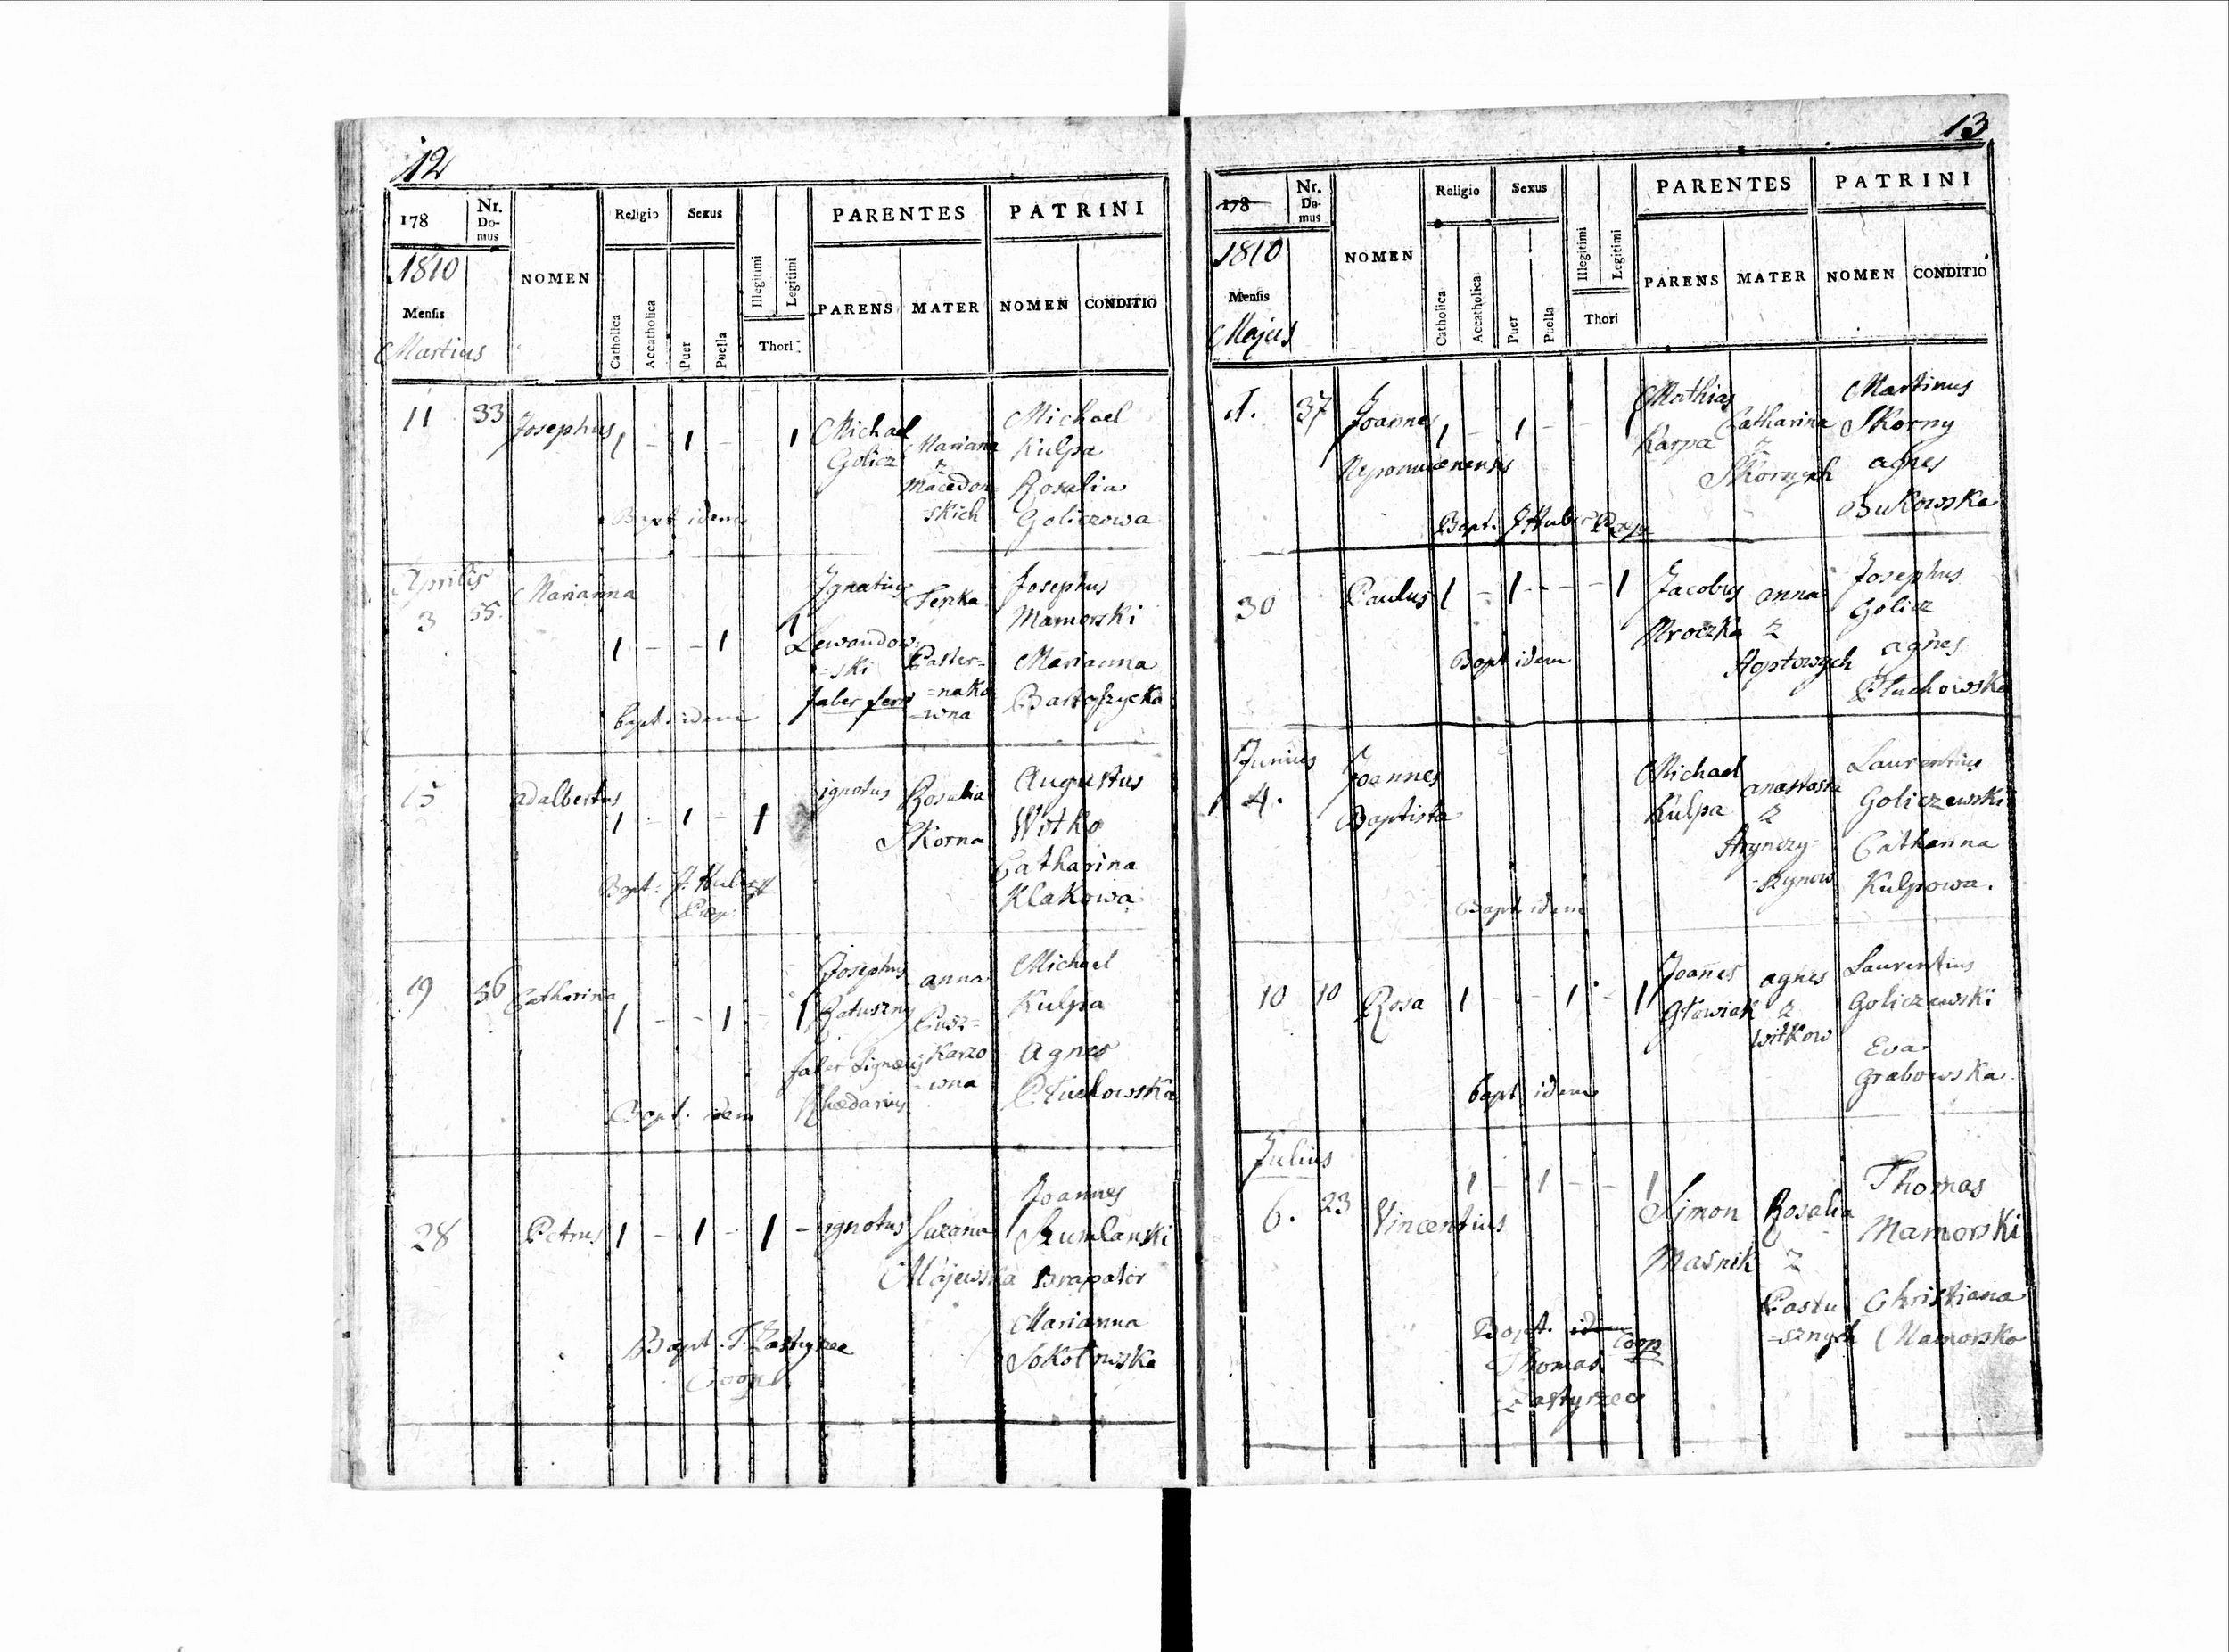 12
178
Nr. Do- mus
NOMEN
Religio
Sexus
PARENTES
PATRINI
1810
Mensis
Martius
Catholica
Accatholica
Puer
Puella
Illegitimi
Legitimi
Thori
PARENS
MATER
NOMEN
CONDITIO
11 33 Josephus 1 - 1 - - 1
Michael
Golicz
Mariana
z
Macedon
-skich
Michael
Kulpa
Rosalia
Goliczowa
Bapt idem
Aprilis
3 55. Marianna
1 - - 1 1
Ignatius
Lewandow
=ski
faber ferr
Terzka
Paster=
=nako
=wna
Josephus
Mamorski
Marianna
Bartoszycka
bapt: idem
15 adalbertus
1 - 1 - 1
ignotus
Rosalia
Skorna
Augustus
Witko
Catharina
Klakowa
Bapt: J. Huber
19 56 Catharina
1 - - 1 - 1
Josephus
Ratuszny
faber Lignarius
Rhedarius
anna
Pusz=
karzo
=wna
Michael
Kulpa
Agnes
Pluchowska
Bapt. idem
28 Petrus 1 - 1 - 1 -
ignotus
Suzana
Majewska
Joannes
Szumlanski
Marianna
Sokołowska
Bapt. T. Zastyrzec
Coop.
13
178
Nr. Do- mus
NOMEN
Religio
Sexus
PARENTES
PATRINI
1810
Mensis
Majus
Catholica
Accatholica
Puer
Puella
Illegitimi
Legitimi
Thori
PARENS
MATER
NOMEN
CONDITIO
1. 37 Joannes
Nepomucenensis
1 - 1 - - 1
Mathias
Karpa
Catharina
z
Skornych
Martinus
Skorny
agnes
Bukowska
Bapt. J Huber Præp
30 Paulus 1 - 1 - - 1
Jacobus
Mroczka
anna
z
Josephus
Golicz
agnes
Pluchowska
Bapt idem
Junius
4. Joannes
Baptista
Michael
Kulpa
anastasia
z
Hrynczy-
-szynow
Laurentius
Goliczewski
Catharina
Kulpowa.
Bapt idem
10 10 Rosa 1 - - 1 - 1
Joanes
Głowiak
agnes
z
witkow
Laurentius
Goliczewski
Eva
Grabowska
bapt. idem
Julius
6. 23 Vincentius
1 - 1 - - 1
Simon
Masnik
Rosalia
z
Pastu
=sznych
Thomas
Mamorski
Christiana
Mamorska
Bapt. idem Coop
Thomas
Zastyrzec